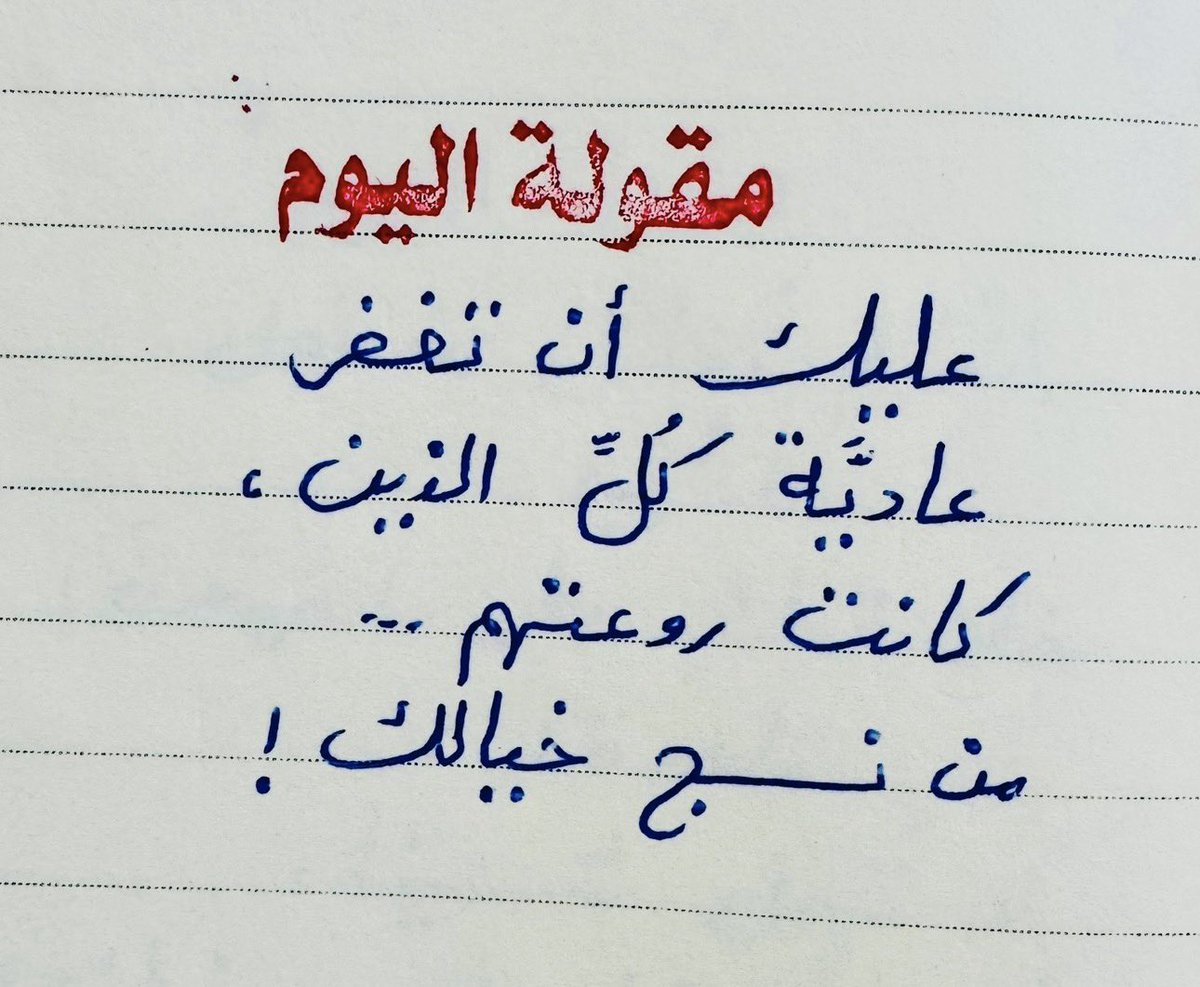 مقولة اليوم
عليك أن تغفر
عاديَّة كُلِّ الذين،
كانت روعتهم ...
من نسج خيالك!